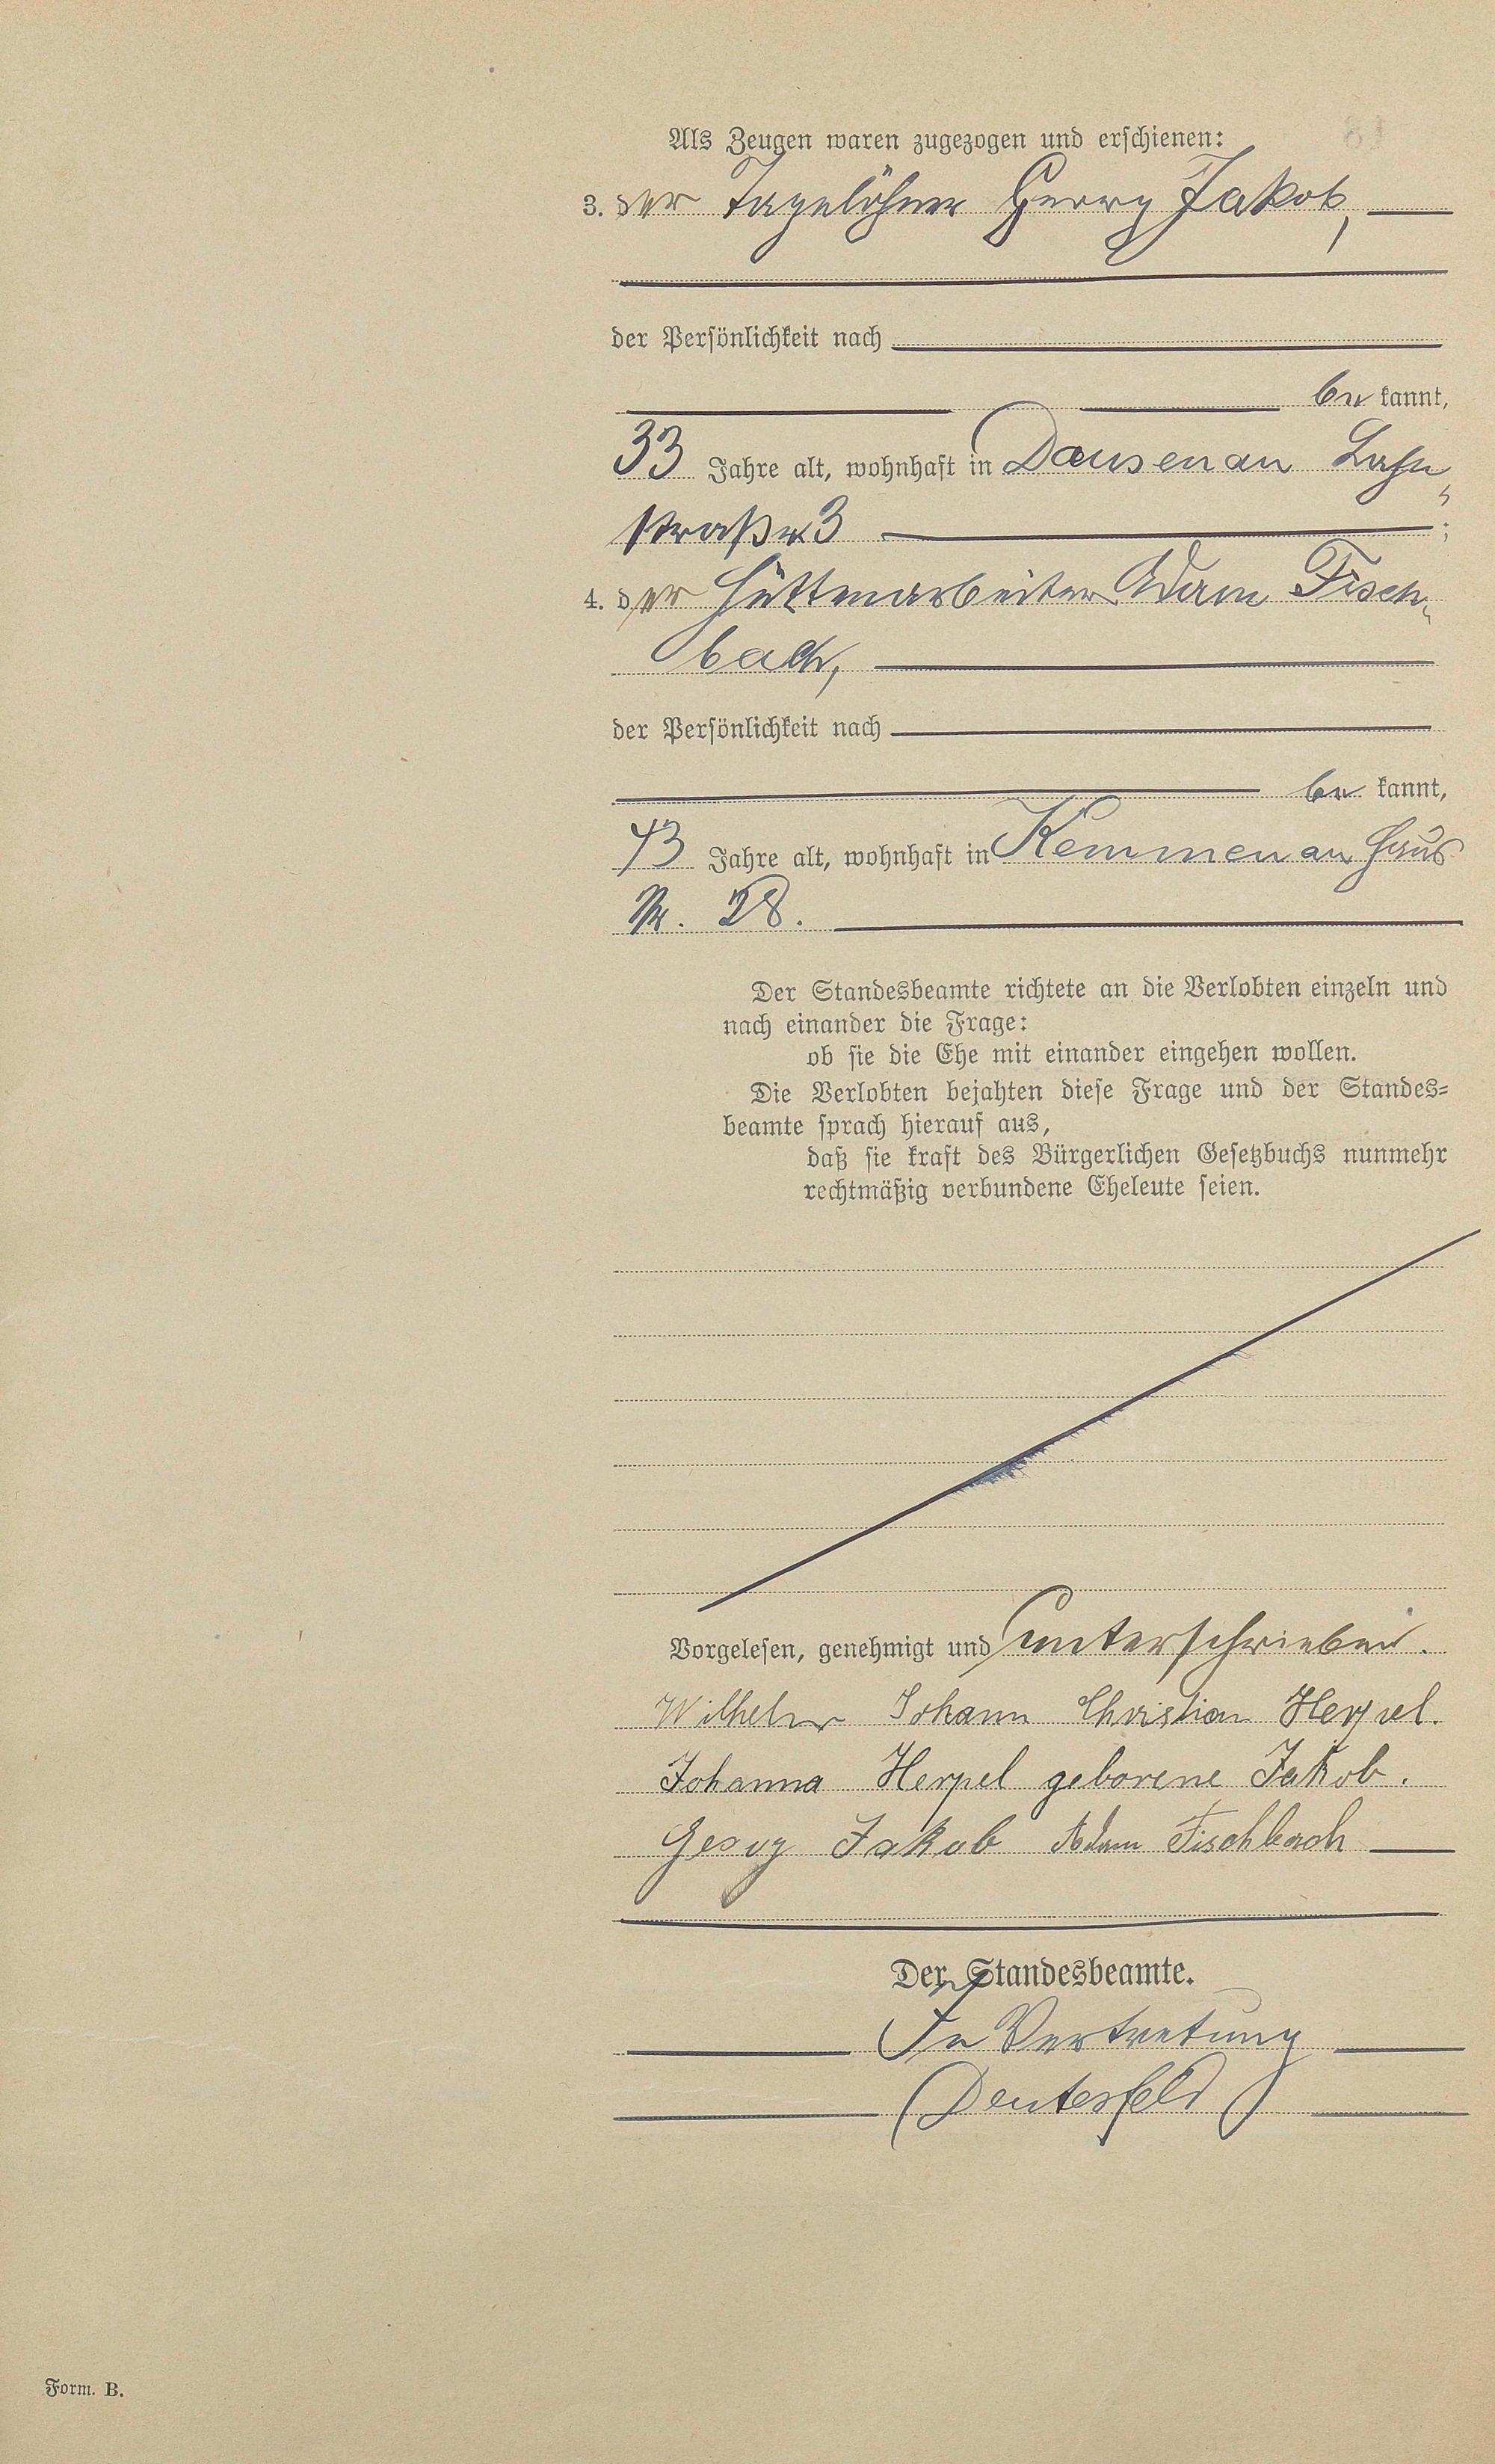 Als Zeugen waren zugezogen und erschienen:
3. der Tagelöhner Georg Jakob,
der Persönlichkeit nach
be kannt,
33 Jahre alt, wohnhaft in Dausenau Lahn
straße 3 ;
4. der Hüttenarbeiter Adam Fisch
bach,
der Persönlichkeit nach
be kannt,
43 Jahre alt, wohnhaft in Kemmenau Haus
Nr. 28.
Der Standesbeamte richtete an die Verlobten einzeln und
nach einander die Frage:
ob sie die Ehe mit einander eingehen wollen.
Die Verlobten bejahten diese Frage und der Standes=
beamte sprach hierauf aus,
daß sie kraft des Bürgerlichen Gesetzbuchs nunmehr
rechtmäßig verbundene Eheleute seien.
Vorgelesen, genehmigt und unterschrieben.
Wilhelm Johann Christian Herpel.
Johanna Herpel geborene Jakob.
Georg Jakob Adam Fischbach
Der Standesbeamte.
In Vertretung
Deutesfeld
Form. B.